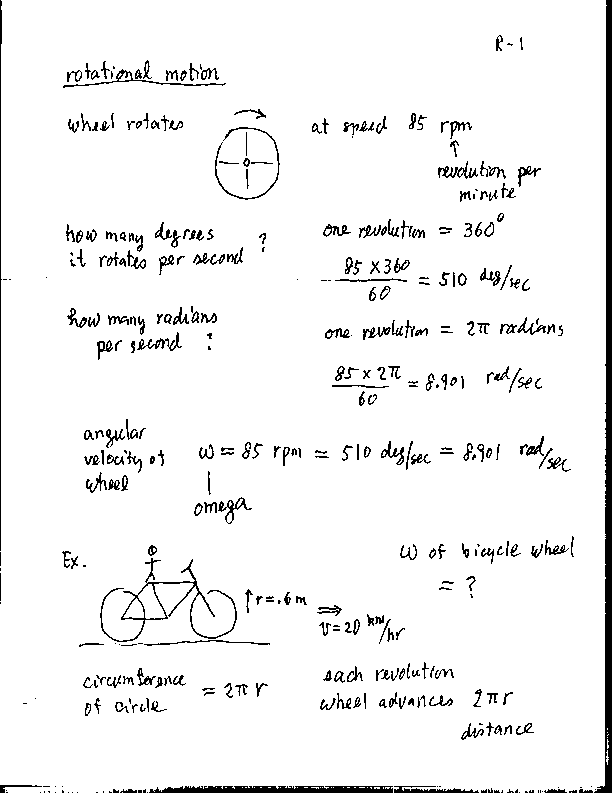 R-1
rotational motion
wheel rotates at speed 85 rpm
↑
revolution per
minute
how many degrees
it rotates per second ?
one revolution = 360°
85 × 360
60
= 510 deg/sec
how many radians
per second ?
one revolution = 2π radians
85 × 2π
60
= 8.901 rad/sec
angular
velocity of
wheel
ω = 85 rpm = 510 deg/sec = 8.901 rad/sec
omega
Ex.
ω of bicycle wheel
= ?
↑ r = .6 m
⇒
v = 20 km/hr
circumference
of circle
= 2πr
each revolution
wheel advances 2πr
distance